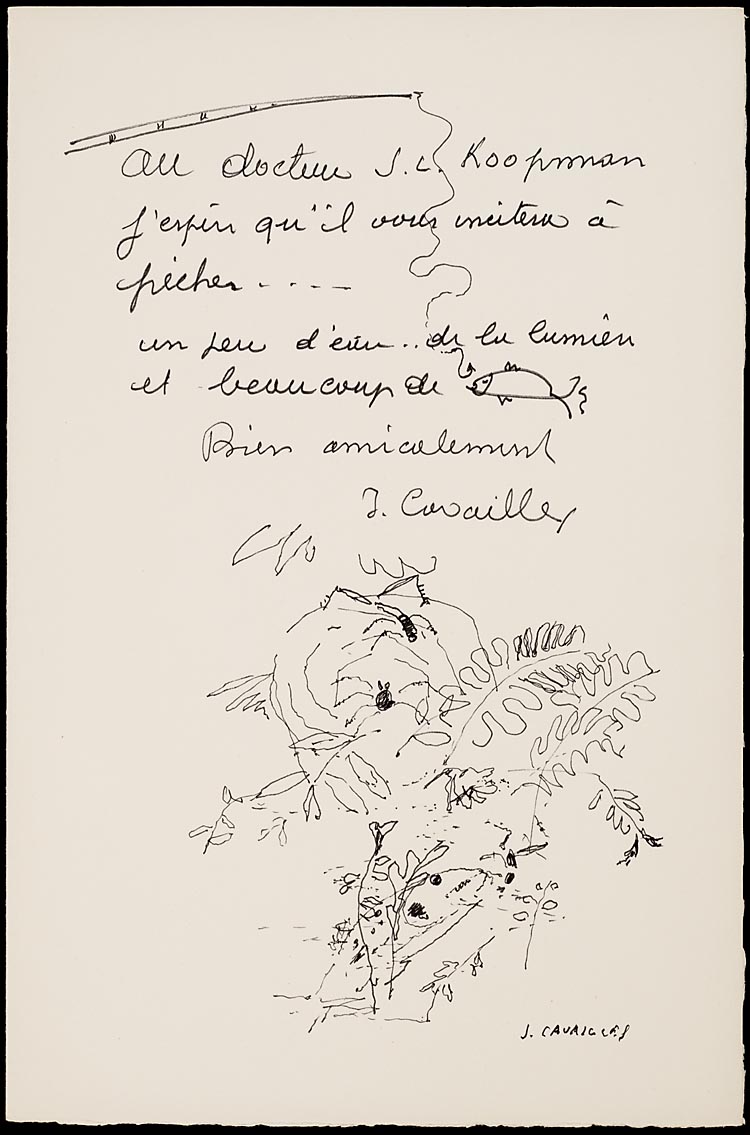 Au docteur J.L. Koopman
j'espère qu'il vous incitera à
pêcher . . . .
un peu d'eau .. de la lumière
et beaucoup de
Bien amicalement
J. Cavailles
J. CAVAILLES